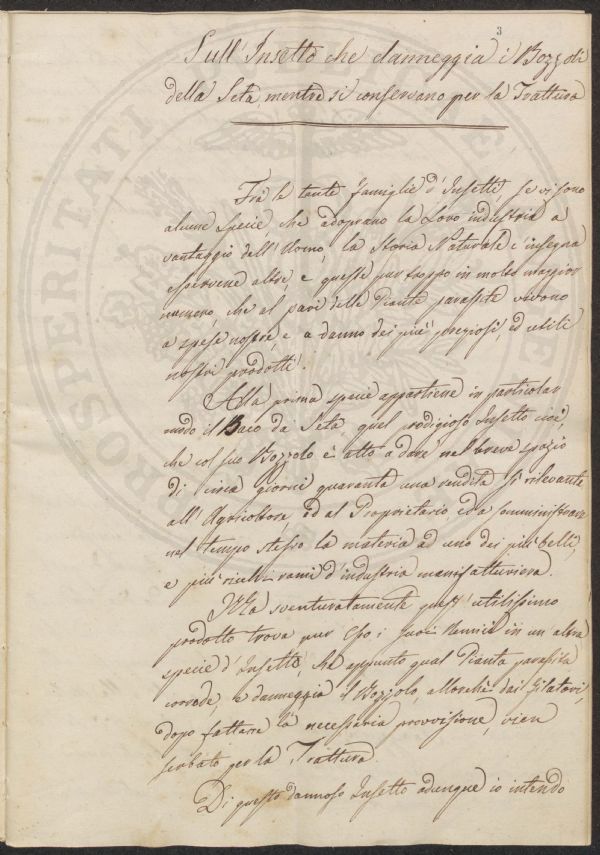 3
Sull'Insetto che danneggia i Bozzoli
della Seta, mentre si conservano per la Trattura
Trà le tante famiglie d'Insetti, se vi sono
alcune specie, che adoprano la Loro industria a
vantaggio dell'Uomo, la Storia Naturale c'insegna
esservene altre, e queste pur troppo in molto maggior
numero, che al pari delle Piante parasite vivono
a spese nostre, e a danno dei più preziosi, ed utili
nostri prodotti.
Alla prima specie appartiene in particolar
modo il Baco da Seta, quel prodigioso Insetto cioè,
che col suo Bozzolo è atto a dare nel breve spazio
di circa giorni quaranta una rendita sì rilevante
all'Agricoltore, ed al Proprietario, ed a somministrare
nel tempo stesso la materia ad uno dei più belli,
e più ricchi rami d'industria manifatturiera.
Ma sventuratamente quest'utilissimo
prodotto trova pur Esso i suoi Nemici in un'altra
specie d'Insetto, che appunto qual Pianta parasita
corrode, e danneggia il Bozzolo, allorchè dai Filatori,
dopo fattane la necessaria provvisione, vien
serbato per la Trattura.
Di questo dannoso Insetto adunque io intendo
PROSPERITATI PUBLICAE